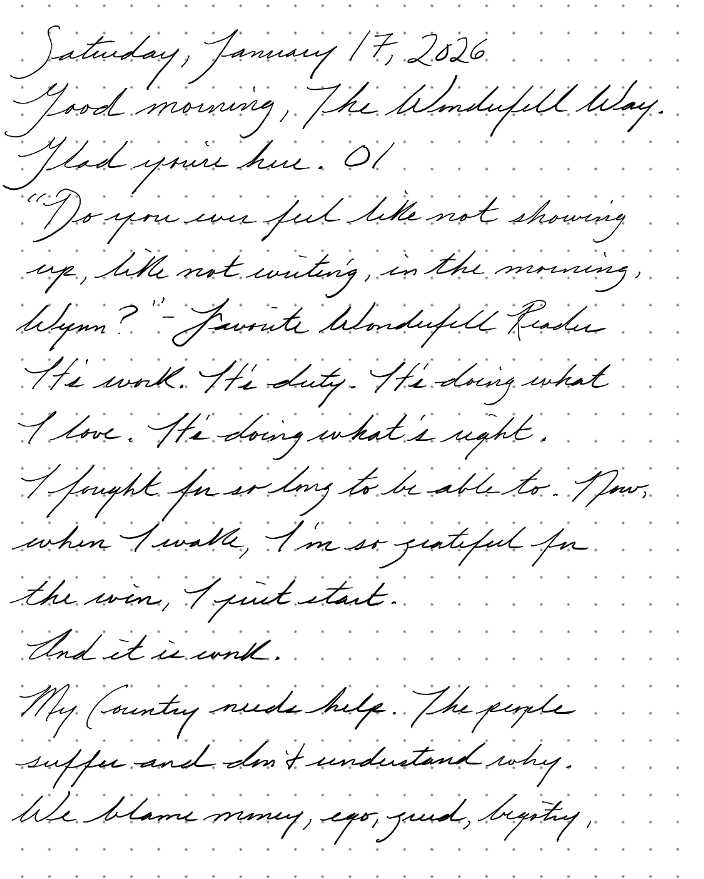 Saturday, January 17, 2026
Good morning, The Wonderfell Way.
Glad you're here. 01
"Do you ever feel like not showing
up, like not writing, in the morning,
Wynn?" - Favorite Wonderfell Reader
It's work. It's duty. It's doing what
I love. It's doing what's right.
I fought for so long to be able to. Now,
when I wake, I'm so grateful for
the win, I just start.
And it is work.
My Country needs help. The people
suffer and don't understand why.
We blame money, ego, greed, bigotry,